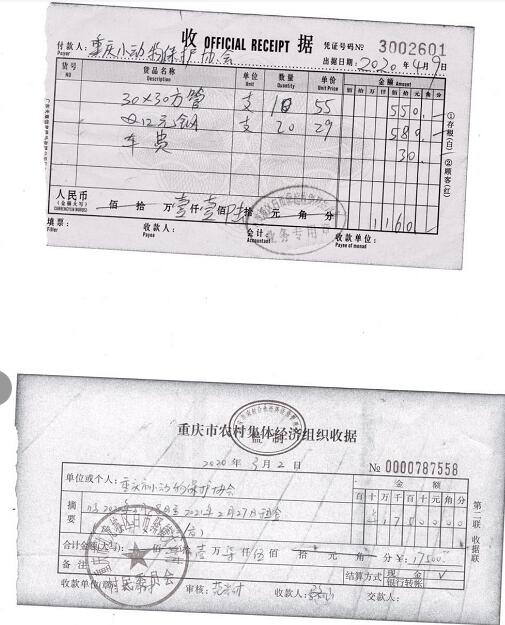 收 OFFICIAL RECEIPT 据 凭证号码№ 3002601
付款人: 重庆小动物保护协会 出据日期: 2020年4月9日
Payer
货号 货品名称 单位 数量 单价 金额 Amount
NO Description Unit Quantity Unit Price 佰 拾 万 仟 佰 拾 元 角 分
30×30方管 支 10 55 550.
支 20 29 580.
车费 30.
①存根(白) ②顾客(红)
人民币 佰 拾 万壹仟壹佰陆拾 元 角 分 1160
(金额大写)
填票: 收款人: 会计: 收款单位:
Filler Payee Accountant
财务专用章
重庆市农村集体经济组织收据
监制
2020 年 3 月 2 日 № 0000787558
单位或个人: 重庆市小动物保护协会 金额
百 十 万 千 百 十 元 角 分
摘要 2021年2月27日租金 1750000
第二联 收据联
合计金额(大写): 壹 万 柒 仟 伍 佰 拾 元 角 分 ¥: 17500
备注 结算方式 现金 √
银行转帐
收款单位(章) 审核: 收款人: 交款人:
村民委员会